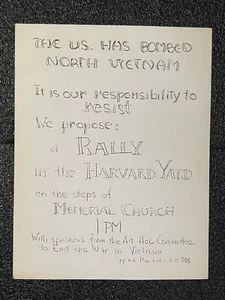 THE U.S. HAS BOMBED
NORTH VIETNAM
It is our responsibility to
resist
We propose:
a RALLY
in the HARVARD YARD
on the steps of
MEMORIAL CHURCH
1 PM
With speakers from the Ad Hoc Committee
To End the War in Vietnam
SDS